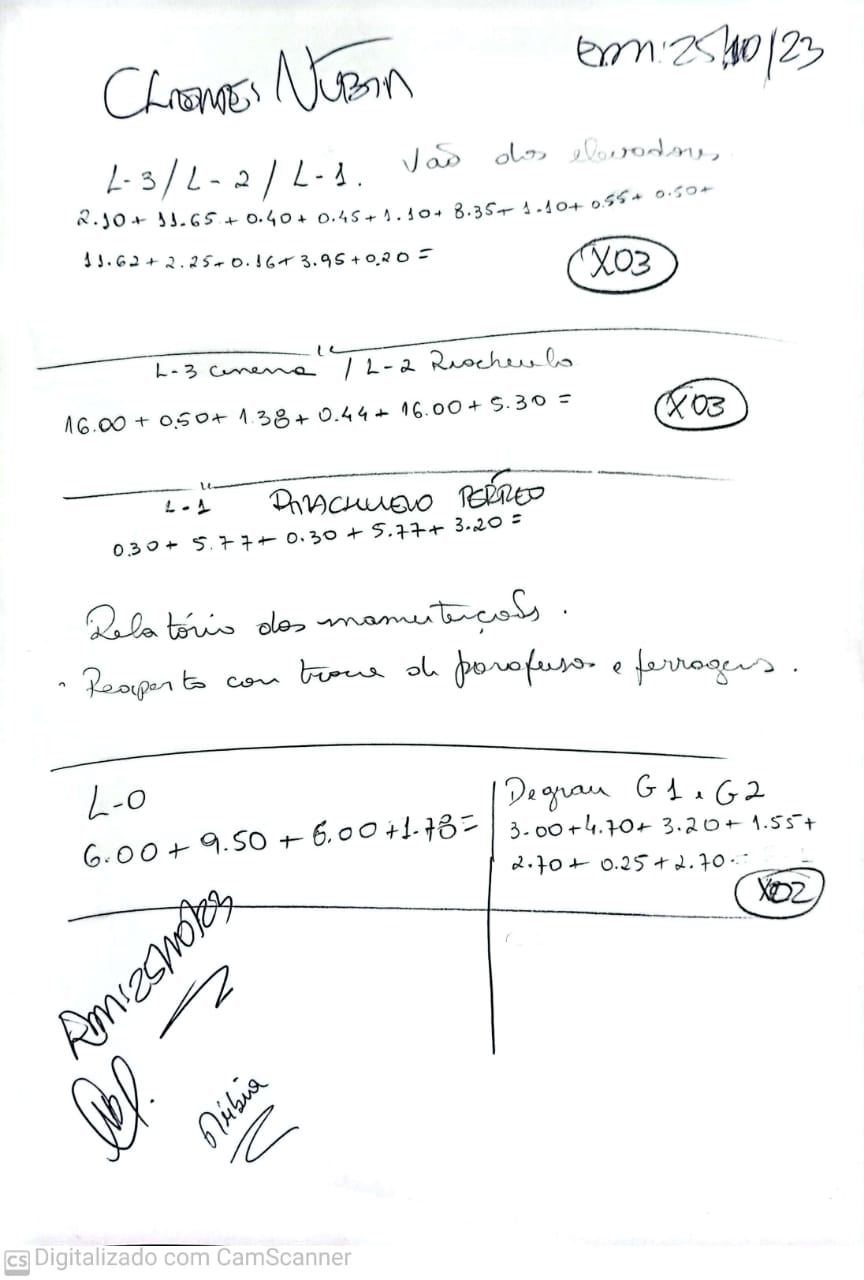 Clientes Núbia
em: 25/10/23
L-3/L-2/L-1. Vão dos elevadores
2.10+11.65+0.40+0.45+1.10+8.35+1.10+0.55+0.50+
11.62+2.25+0.16+3.95+0,20=
X03
L-3 cinema / L-2 Riachuelo
16.00+0.50+1.38+0.44+16.00+5.30=
X03
L-1
0.30+5.77+0.30+5.77+3.20=
Relatório das manutenções.
Reaperto com troca de parafusos e ferragens.
L-0
6.00+9.50+6.00+1.78=
Degrau G1 e G2
3.00+4.70+3.20+1.55+
2.70+0.25+2.70
X02
Núbia
CS Digitalizado com CamScanner